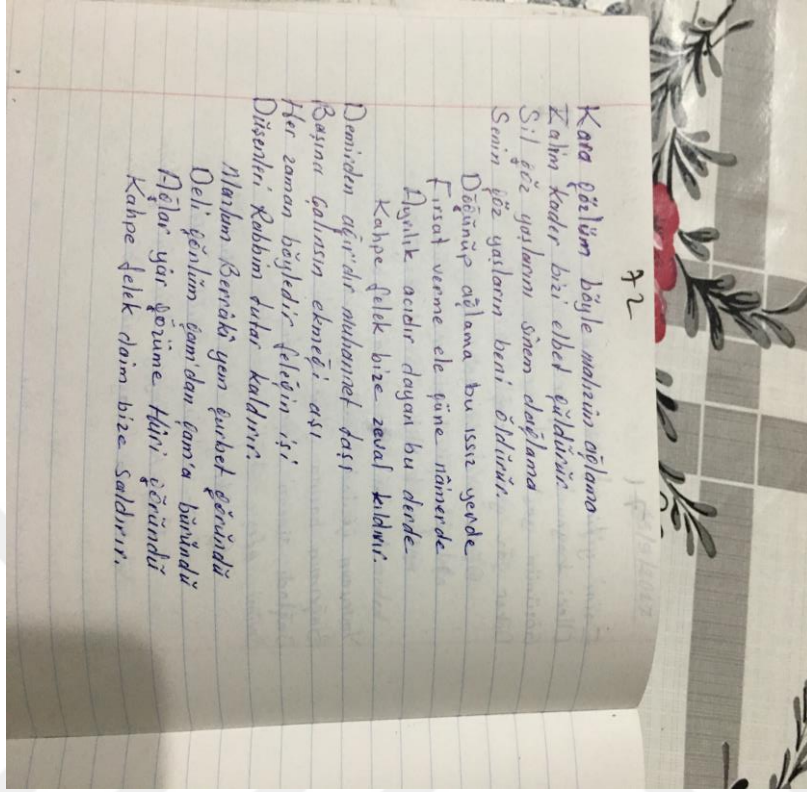 72
Kara gözlüm böyle mahzûn ağlama
Zalim kader bizi elbet güldürür
Sil göz yaşlarını sinem dağlama
Senin göz yaşların beni öldürür.
Döğünüp ağlama bu ıssız yerde
Fırsat verme ele güne nâmerde
Ayrılık acıdır dayan bu derde
Kahpe felek bize zeval kıldırır.
Demirden ağırdır muhannet taşı
Başına çalınsın ekmeği aşı
Her zaman böyledir feleğin işi
Düşenleri Rabbim tutar kaldırır.
Mazlum Berrâkî'yem gurbet göründü
Deli gönlüm gam'dan gam'a büründü
Ağlar yâr gözüme Hûri göründü
Kahpe felek daim bize saldırır.